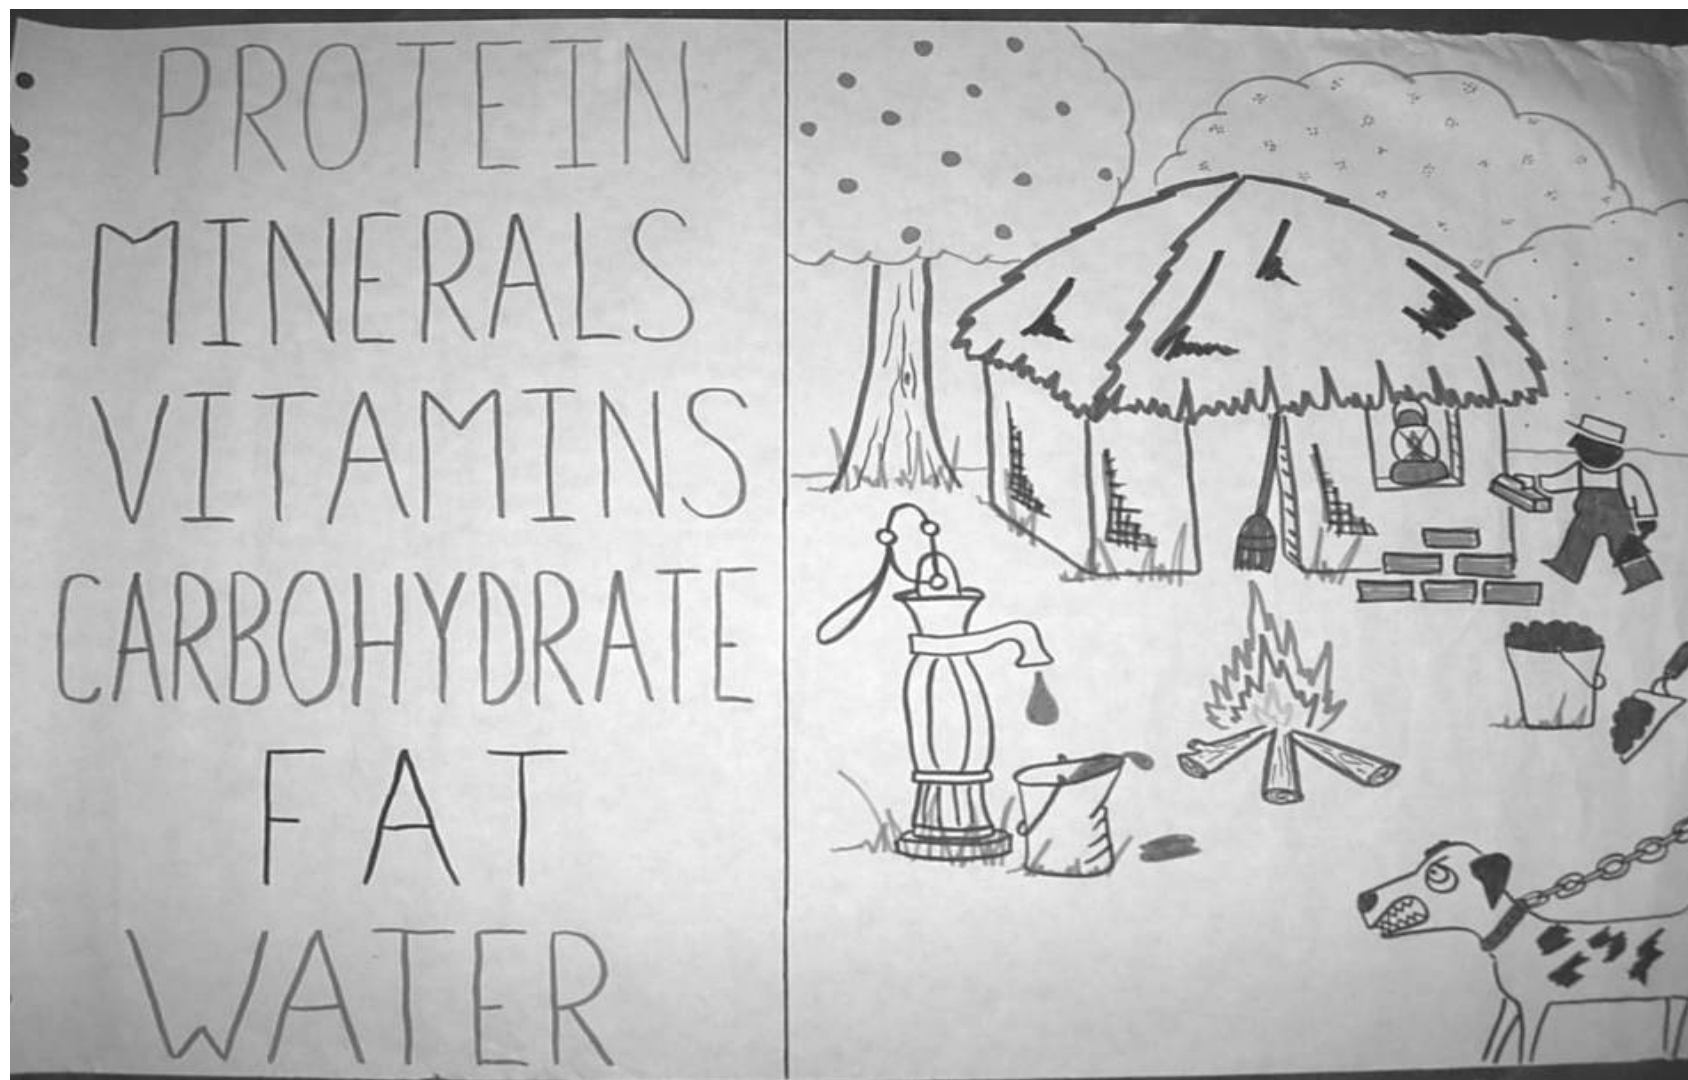 PROTEIN
MINERALS
VITAMINS
CARBOHYDRATE
FAT
WATER